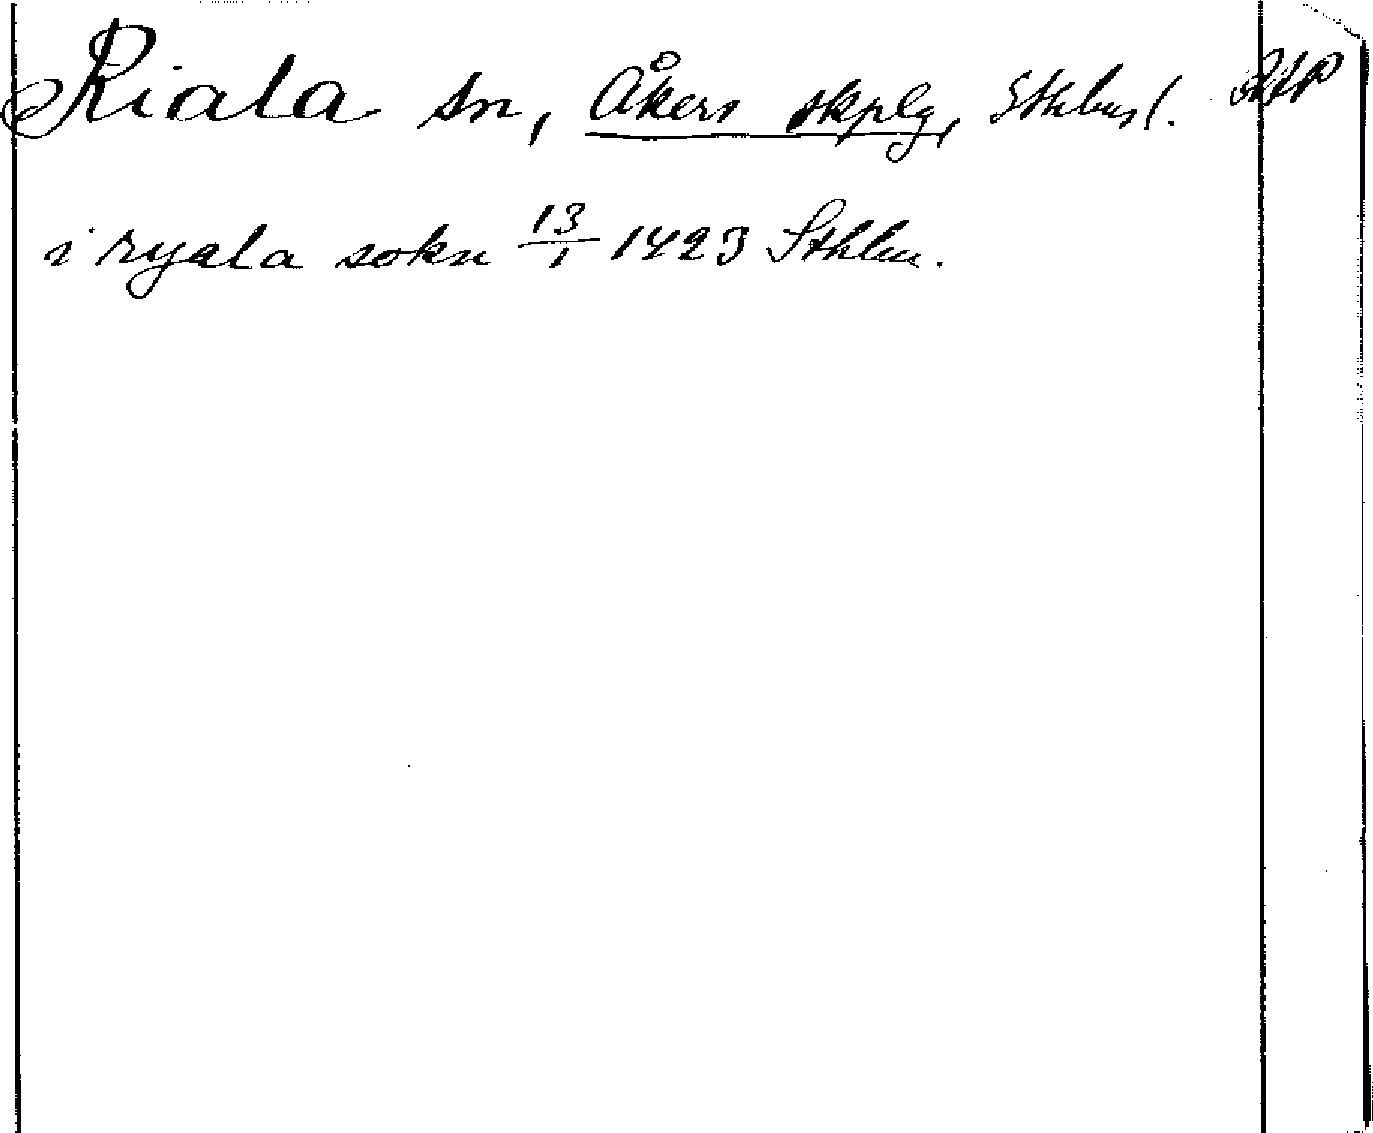 Riala sn, Åkers skplg, Sthlms l.
i ryala sokn 13/1 1423 Sthlm.